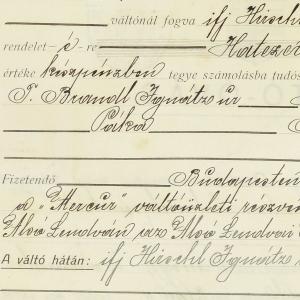 váltónál fogva ifj Hirschl
rendelet-é-re Hatezer
értéke készpénzben tegye számolásba tudós
T. Brandl Ignátz úr
Páka
Fizetendő Budapesten
a "Mercur" váltóüzleti részvén
Alsó Lendván az Alsó Lendvai
A váltó hátán: ifj Hirschl Ignátz